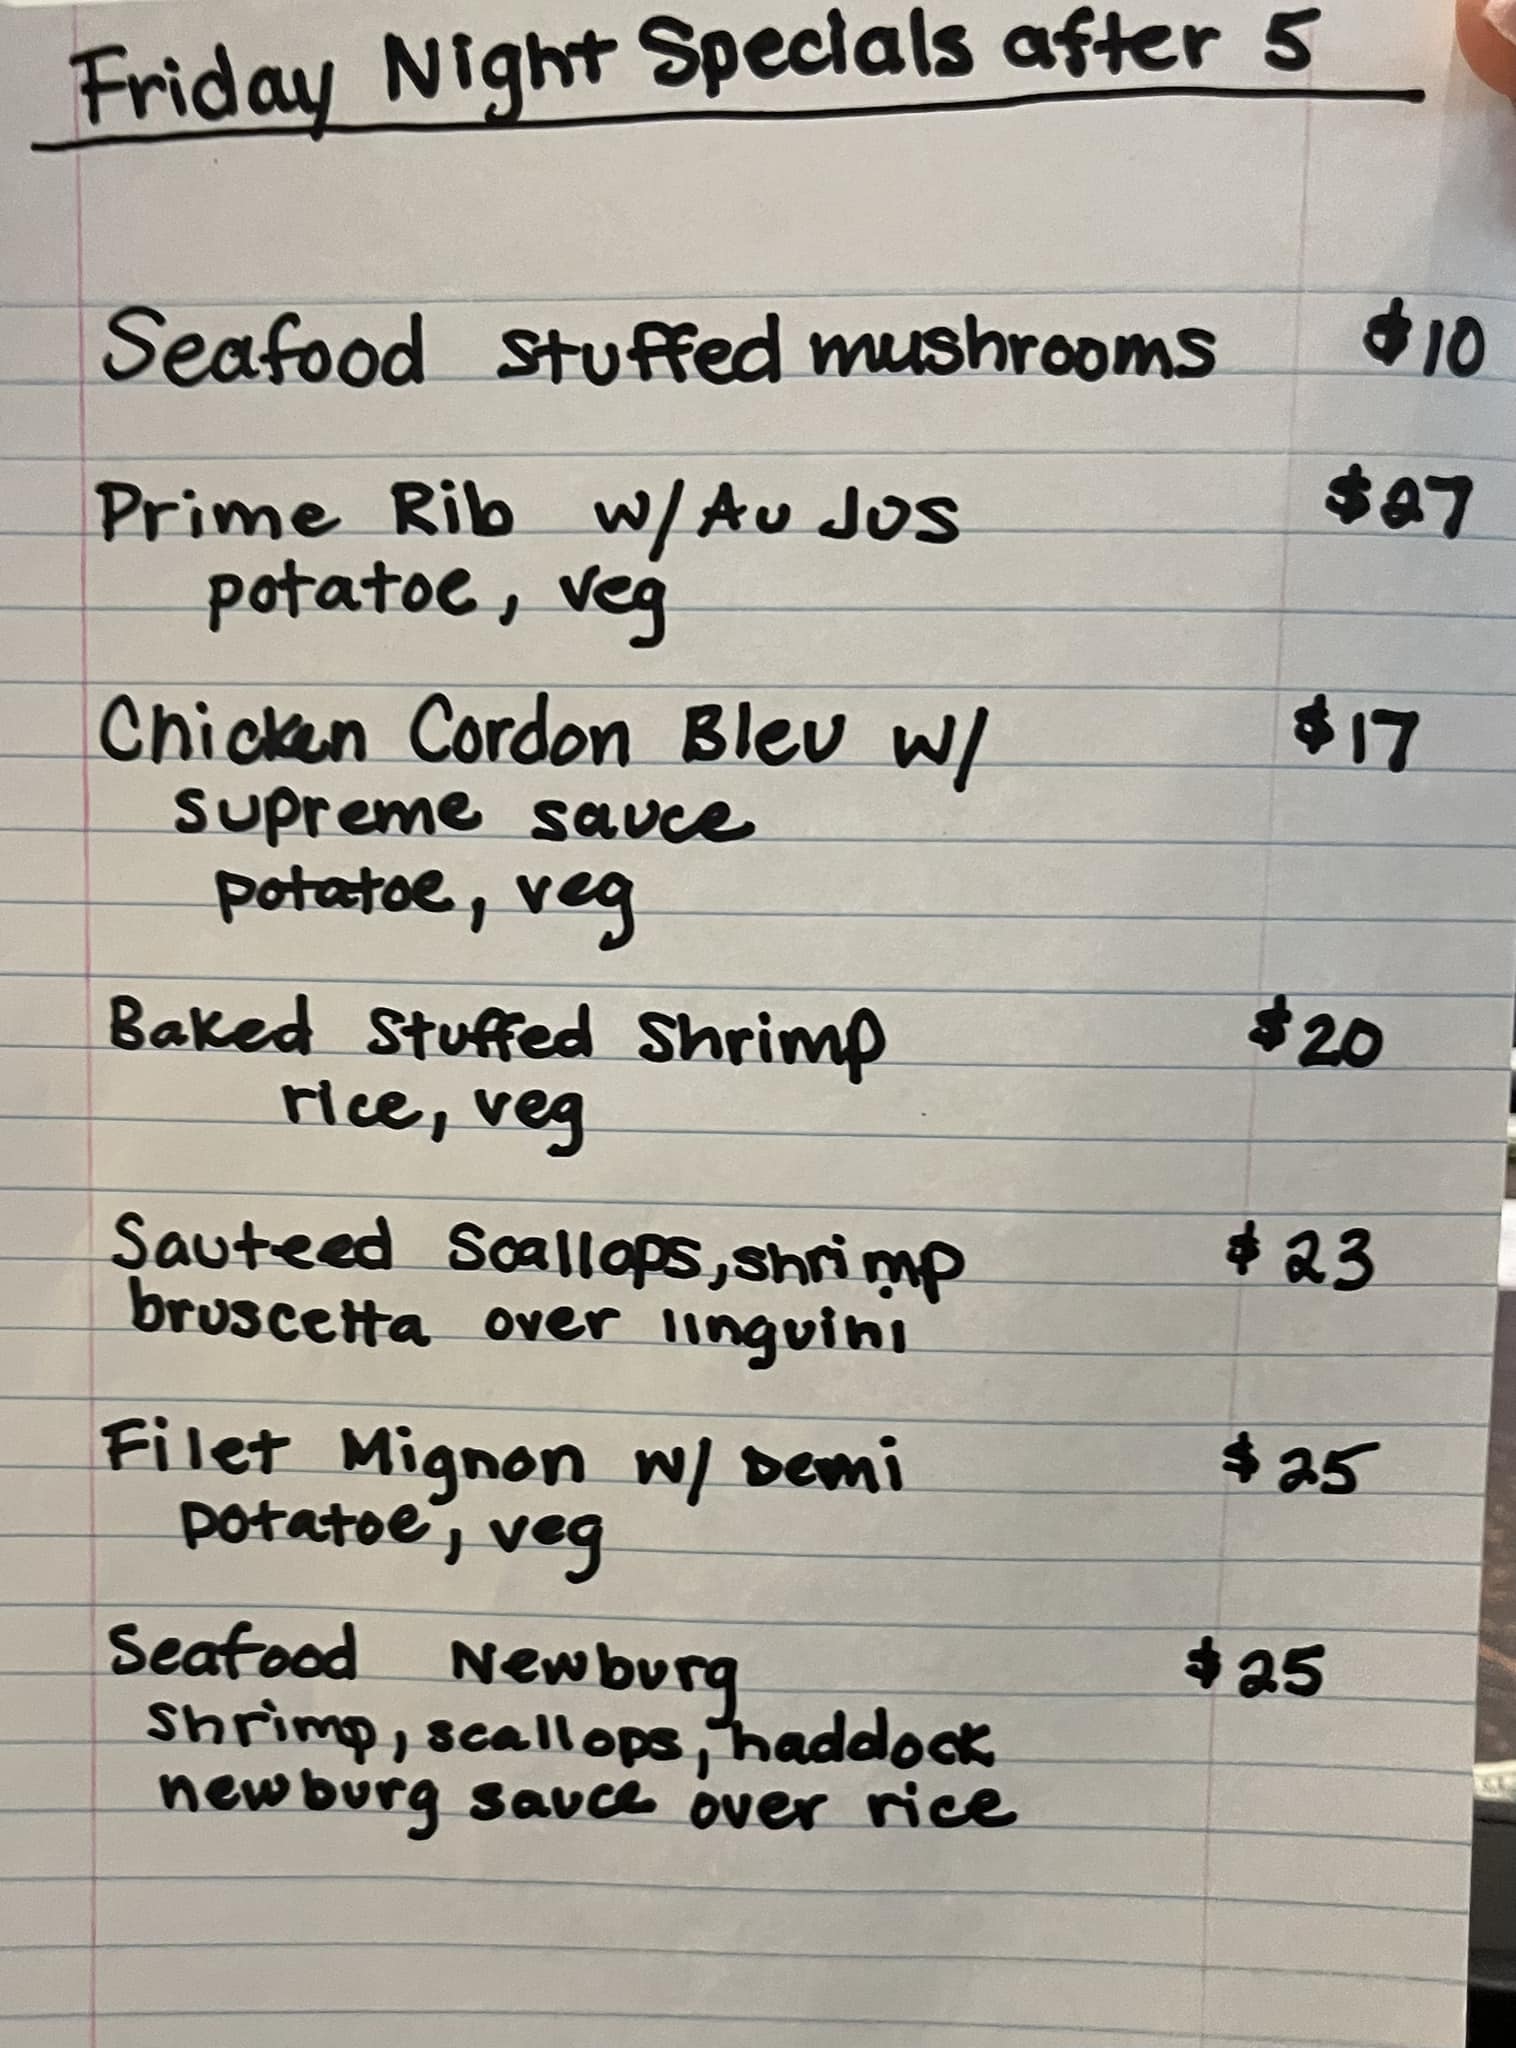 Friday Night Specials after 5
Seafood stuffed mushrooms $10
Prime Rib w/ Au Jus $27
potatoe, veg
Chicken Cordon Bleu w/ $17
supreme sauce
potatoe, veg
Baked Stuffed Shrimp $20
rice, veg
Sauteed Scallops, shrimp $23
bruscetta over linguini
Filet Mignon w/ Demi $25
potatoe, veg
Seafood Newburg $25
shrimp, scallops, haddock
newburg sauce over rice